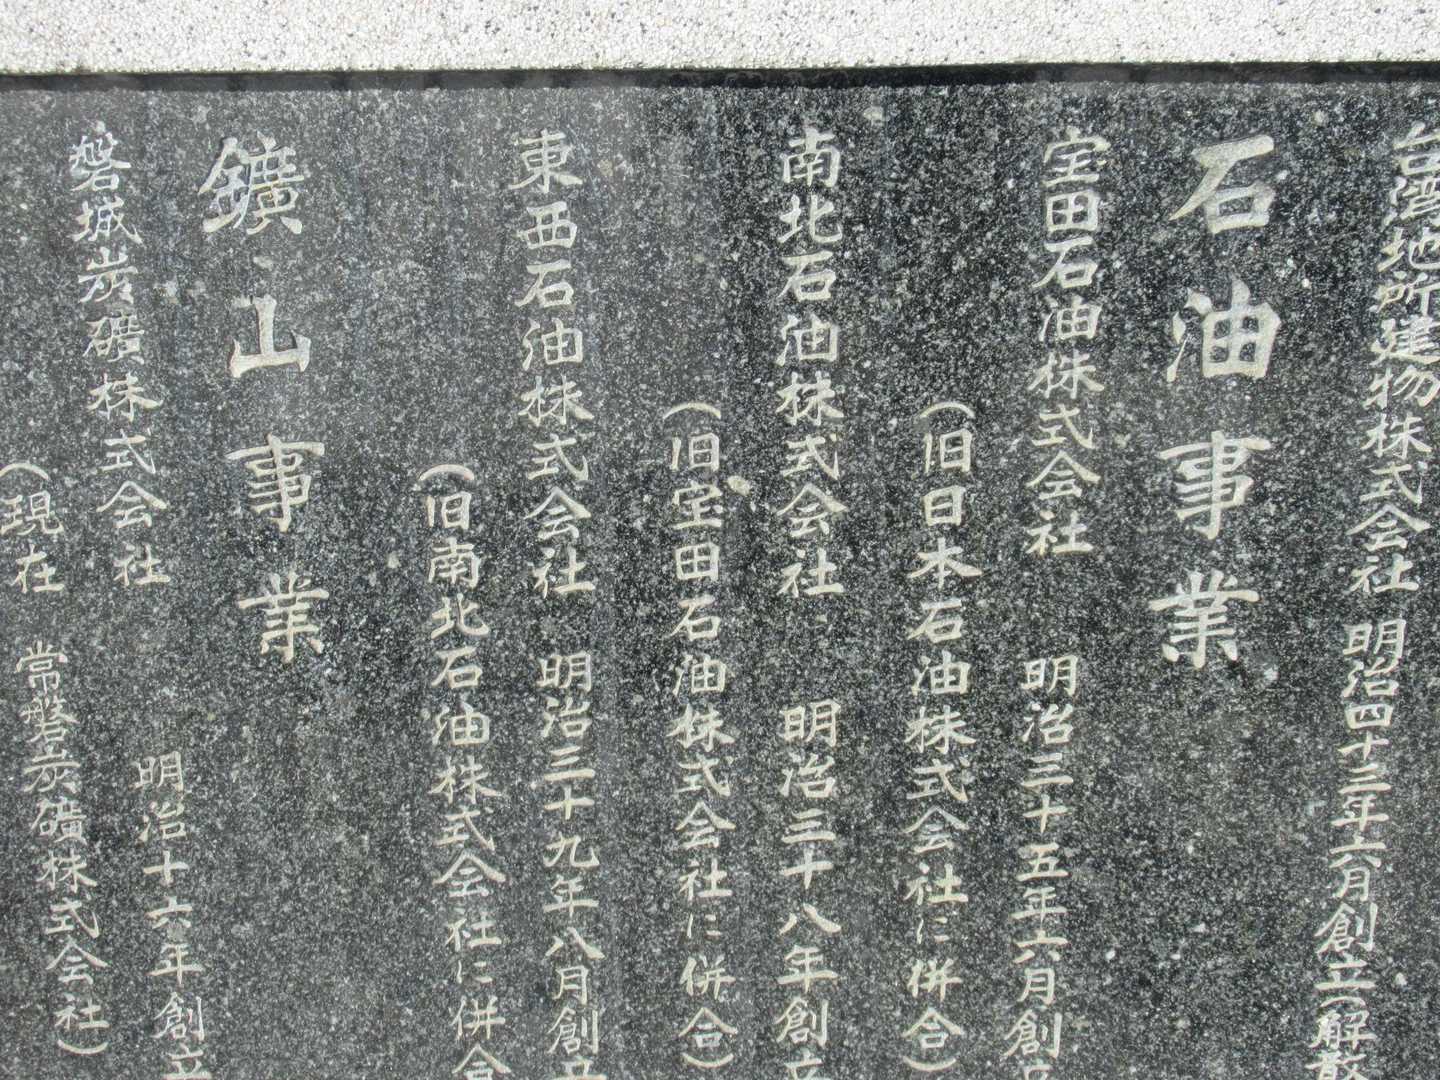 台湾地所建物株式会社 明治四十三年六月創立(解散
石油事業
宝田石油株式会社 明治三十五年六月創立
(旧日本石油株式会社に併合)
南北石油株式会社 明治三十八年創立
(旧宝田石油株式会社に併合)
東西石油株式会社 明治三十九年八月創立
(旧南北石油株式会社に併合
鑛山事業
磐城炭礦株式会社 明治十六年創立
(現在 常磐炭礦株式会社)